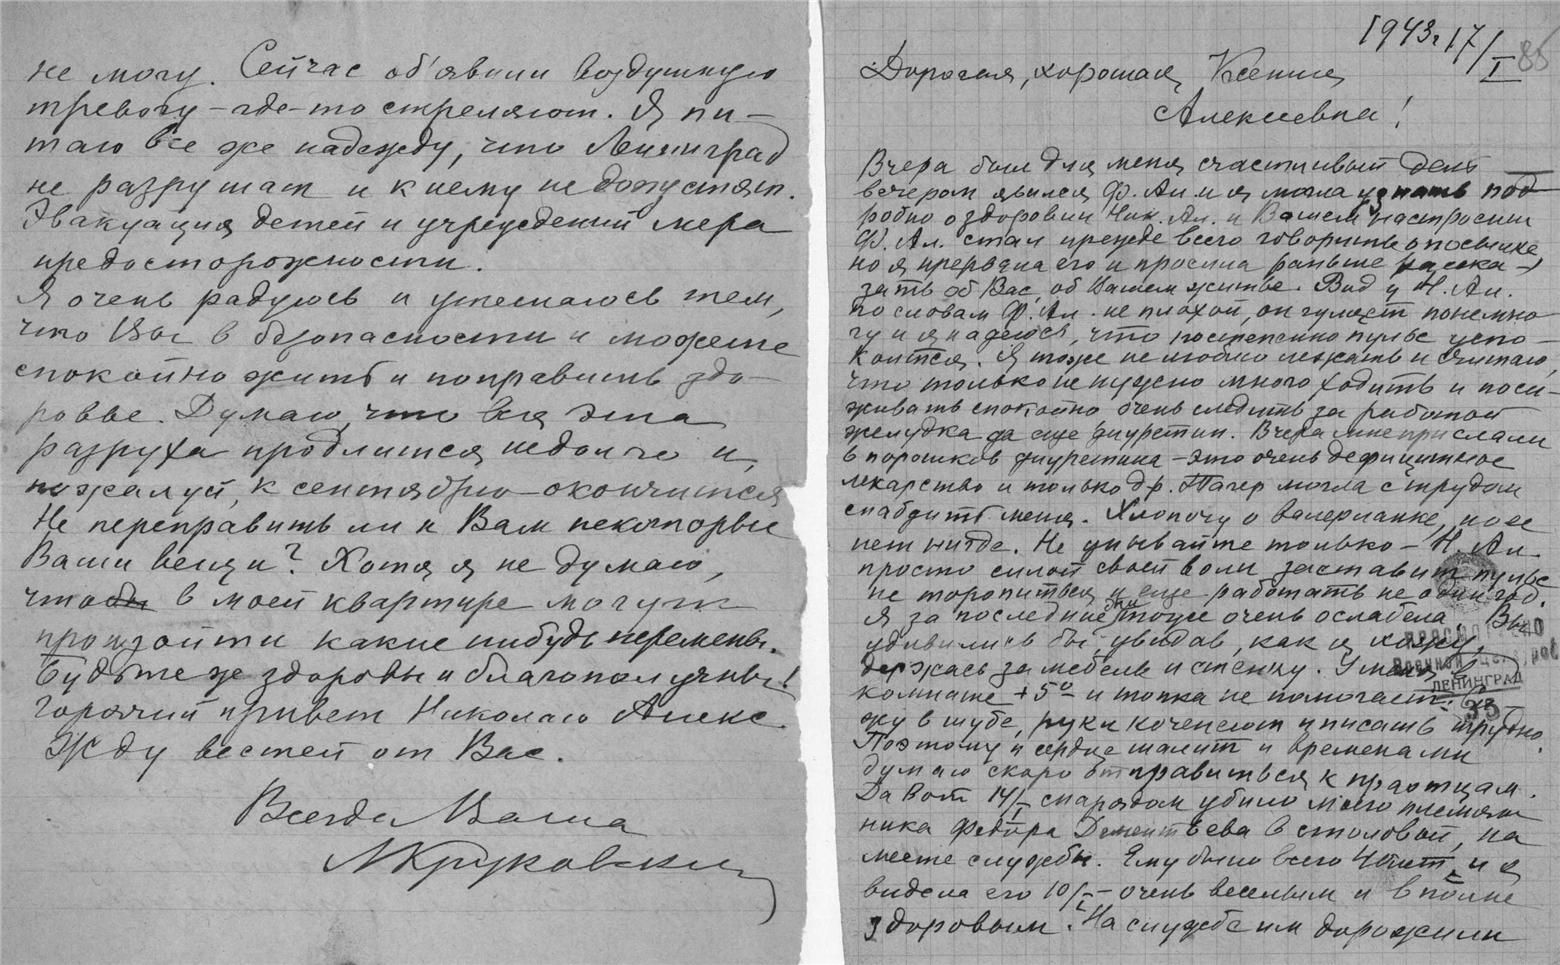 не могу. Сейчас об'явили воздушную
тревогу – где-то стреляют. Я пи-
таю все же надежду, что Ленинград
не разрушат и к нему не допустят.
Эвакуация детей и учреждений мера
предосторожности.
Я очень радуюсь и утешаюсь тем,
что Вы в безопасности и можете
спокойно жить и поправить здо-
ровье. Думаю, что вся эта
разруха продлится недолго и,
пожалуй, к сентябрю – окончится
Не переправить ли к Вам некоторые
Ваши вещи? Хотя я не думаю,
чтобы в моей квартире могут
произойти какие нибудь перемены.
Будьте же здоровы и благополучны!
Горячий привет Николаю Алекс.
Жду вестей от Вас.
Всегда Ваша
МКруковская
1943 г. 17/I
85
Дорогая, хорошая Ксения
Алексеевна!
Вчера был для меня счастливый день
вечером явился Ф. Ал и я могла узнать под
робно о здоровии Ник. Ал. и Вашем настроении
Ф. Ал. стал прежде всего говорить о посылке
но я прервала его и просила раньше расска-
зать об Вас, об Вашем житье. Вид у Н. Ал.
по словам Ф. Ал. не плохой, он гуляет понемно-
гу и я надеюсь, что постепенно пульс успо-
коится. Я тоже не люблю лежать и считаю,
что только не нужно много ходить и поси-
живать спокойно очень следить за работой
желудка да еще диуретин. Вчера мне прислали
6 порошков диуретина – это очень дефицитное
лекарство и только др. Пагер могла с трудом
снабдить меня. Хлопочу о валерианке, но ее
нет нигде. Не унывайте только – Н. Ал.
просто силой своей воли заставит пульс
не торопиться и еще работать не один год.
Я за последние дни тоже очень ослабела. Вы
удивились бы, увидав, как я хожу,
держась за мебель и стенку. У меня в
комнате +5° и топка не помогает.
жу в шубе, руки коченеют и писать трудно.
Поэтому и сердце шалит и временами
думаю скоро отправиться к праотцам.
Да вот 14/I снарядом убило моего племян
ника Федора Дементьева в столовой, на
месте службы. Ему было всего 40 лет, и я
видела его 10/I – очень веселым и вполне
здоровым. На службе им дорожили
ПРОСМОТРЕНО
Военной Цензурой
ЛЕНИНГРАД
33